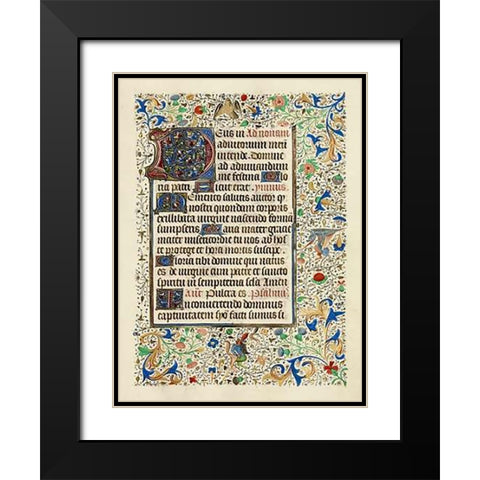 Eus in Ad nonam
adiutorium meū
intende. Domine
ad adiuvandum
me festina
pa tri Sicut erat. ymnus.
Memento salutis auctor q
nostri quondam corporis
ex illibata virgine nascendo formā
sumpseris. Maria mater gracie
mater misericordie tu nos ab hoste
protege et hora mortis suscipe.
Gloria tibi domine qui natus
es de virgine cum patre et sancto
spiritu in sempiterna secla Amen
ant Pulcra es. Psalmus
In convertendo dominus
captivitatem syon facti sumus s